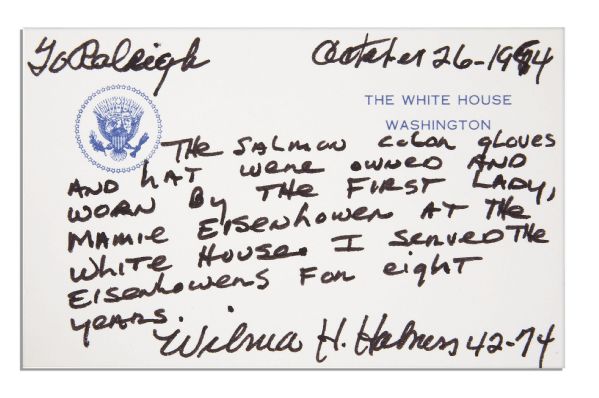 To Raleigh October 26-1994
THE WHITE HOUSE
WASHINGTON
THE SALMON COLOR gloves
AND HAT WERE OWNED AND
WORN By THE FIRST LADY,
MAMIE EISENHOWER AT THE
WHITE HOUSE. I SERVED THE
EISENHOWERS FOR eight
yEARS.
Wilma H. Holness 42-74